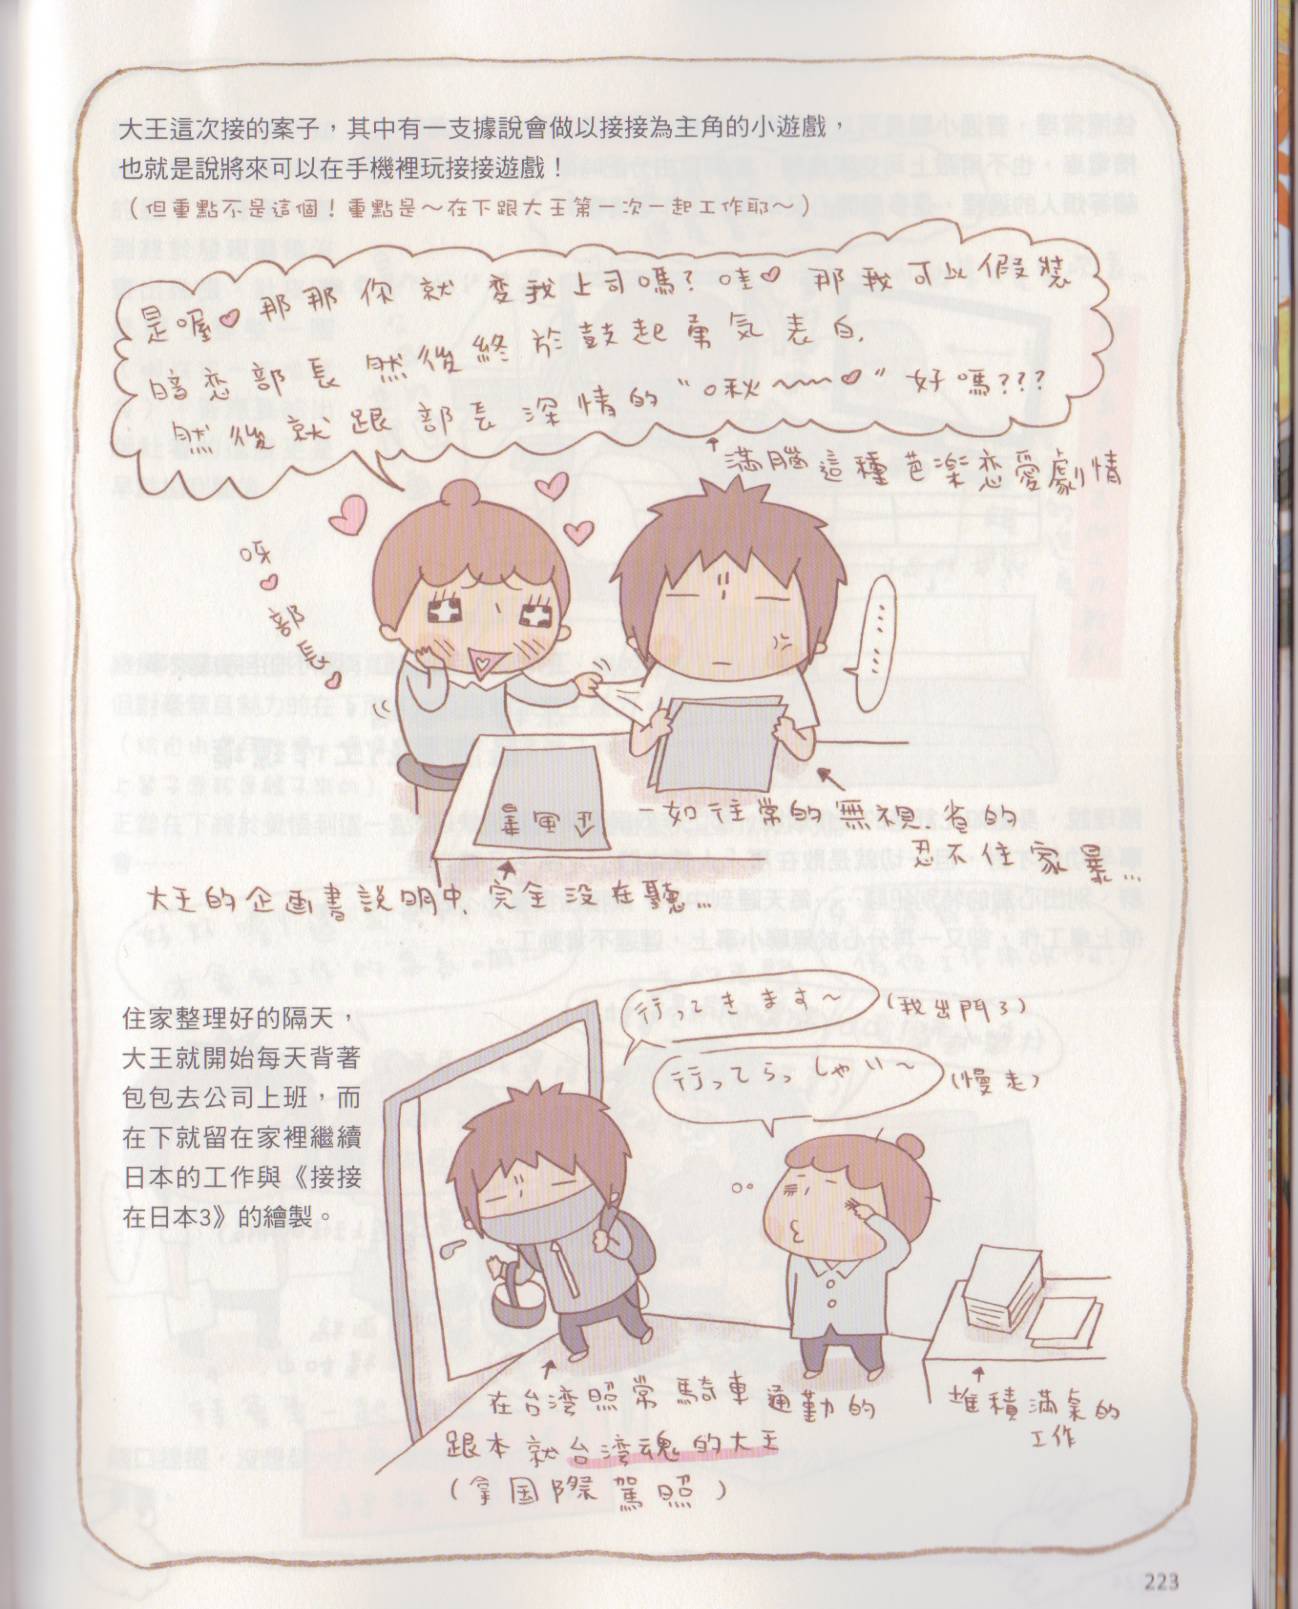 大王這次接的案子，其中有一支據說會做以接接為主角的小遊戲，
也就是說將來可以在手機裡玩接接遊戲！
（但重點不是這個！重點是～在下跟大王第一次一起工作耶～）
是喔♥那那你就變我上司嗎？哇♥那我可以假裝
暗恋部長然後終於鼓起勇気表白.
然後就跟部長深情的“啾~~~♥”好嗎???
↑滿腦這種芭楽恋愛劇情
呀♥部長♥
......
企画书
一如往常的無視.省的
忍不住家暴...
大王的企画書說明中.完全没在聽...
住家整理好的隔天，
大王就開始每天背著
包包去公司上班，而
在下就留在家裡繼續
日本的工作與《接接
在日本3》的繪製。
行ってきます～（我出門了）
行ってらっしゃい～（慢走）
在台湾照常騎車通勤的
跟本就台湾魂的大王
（拿国際駕照）
堆積滿桌的
工作
223